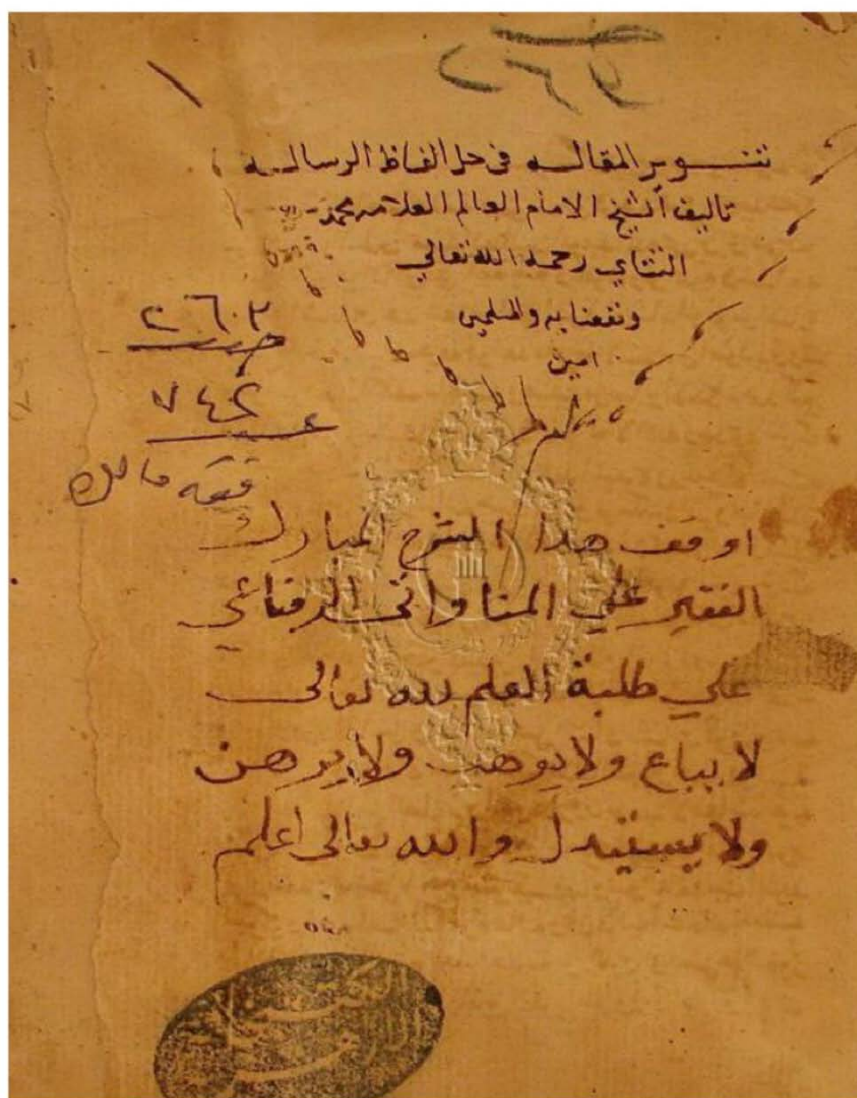 تنوير المقاله في حل الفاظ الرساله
تاليف الشيخ الامام العالم العلامه محمد
التتاي رحمه الله تعالي
ونفعنا به والمسلمين
امين
٢٦٠٣
٧٤٢
فقه مالك
اوقف هذا الشرح المبارك
الفقير علي المناواتي
علي طلبة العلم لله تعالى
لا يباع ولا يوهب ولا يرهن
ولا يستبدل والله تعالى اعلم